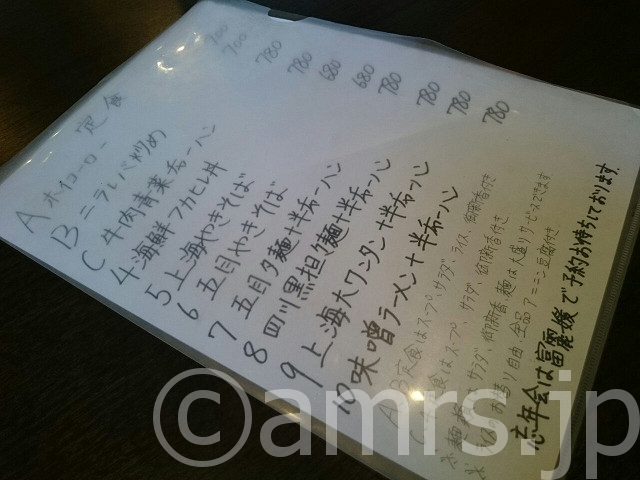 定食
A ホイコーロー 700
B ニラレバ炒め 700
C 牛肉青菜チャーハン 780
4 海鮮フカヒレ丼 780
5 上海やきそば 680
6 五目やきそば 680
7 五目タ麺+半チャーハン 780
8 四川黒担タ麺+半チャーハン 780
9 上海大ワンタン+半チャーハン 780
10 味噌ラーメン+半チャーハン 780
A、B定食はスープ、サラダ、ライス、
定食はスープ、サラダ、
サラダ、 麺は大盛りサービスできます
お替り自由、全品アンニン豆腐付き
忘年会は富麗媛で予約お待ちしております。
©amrs.jp